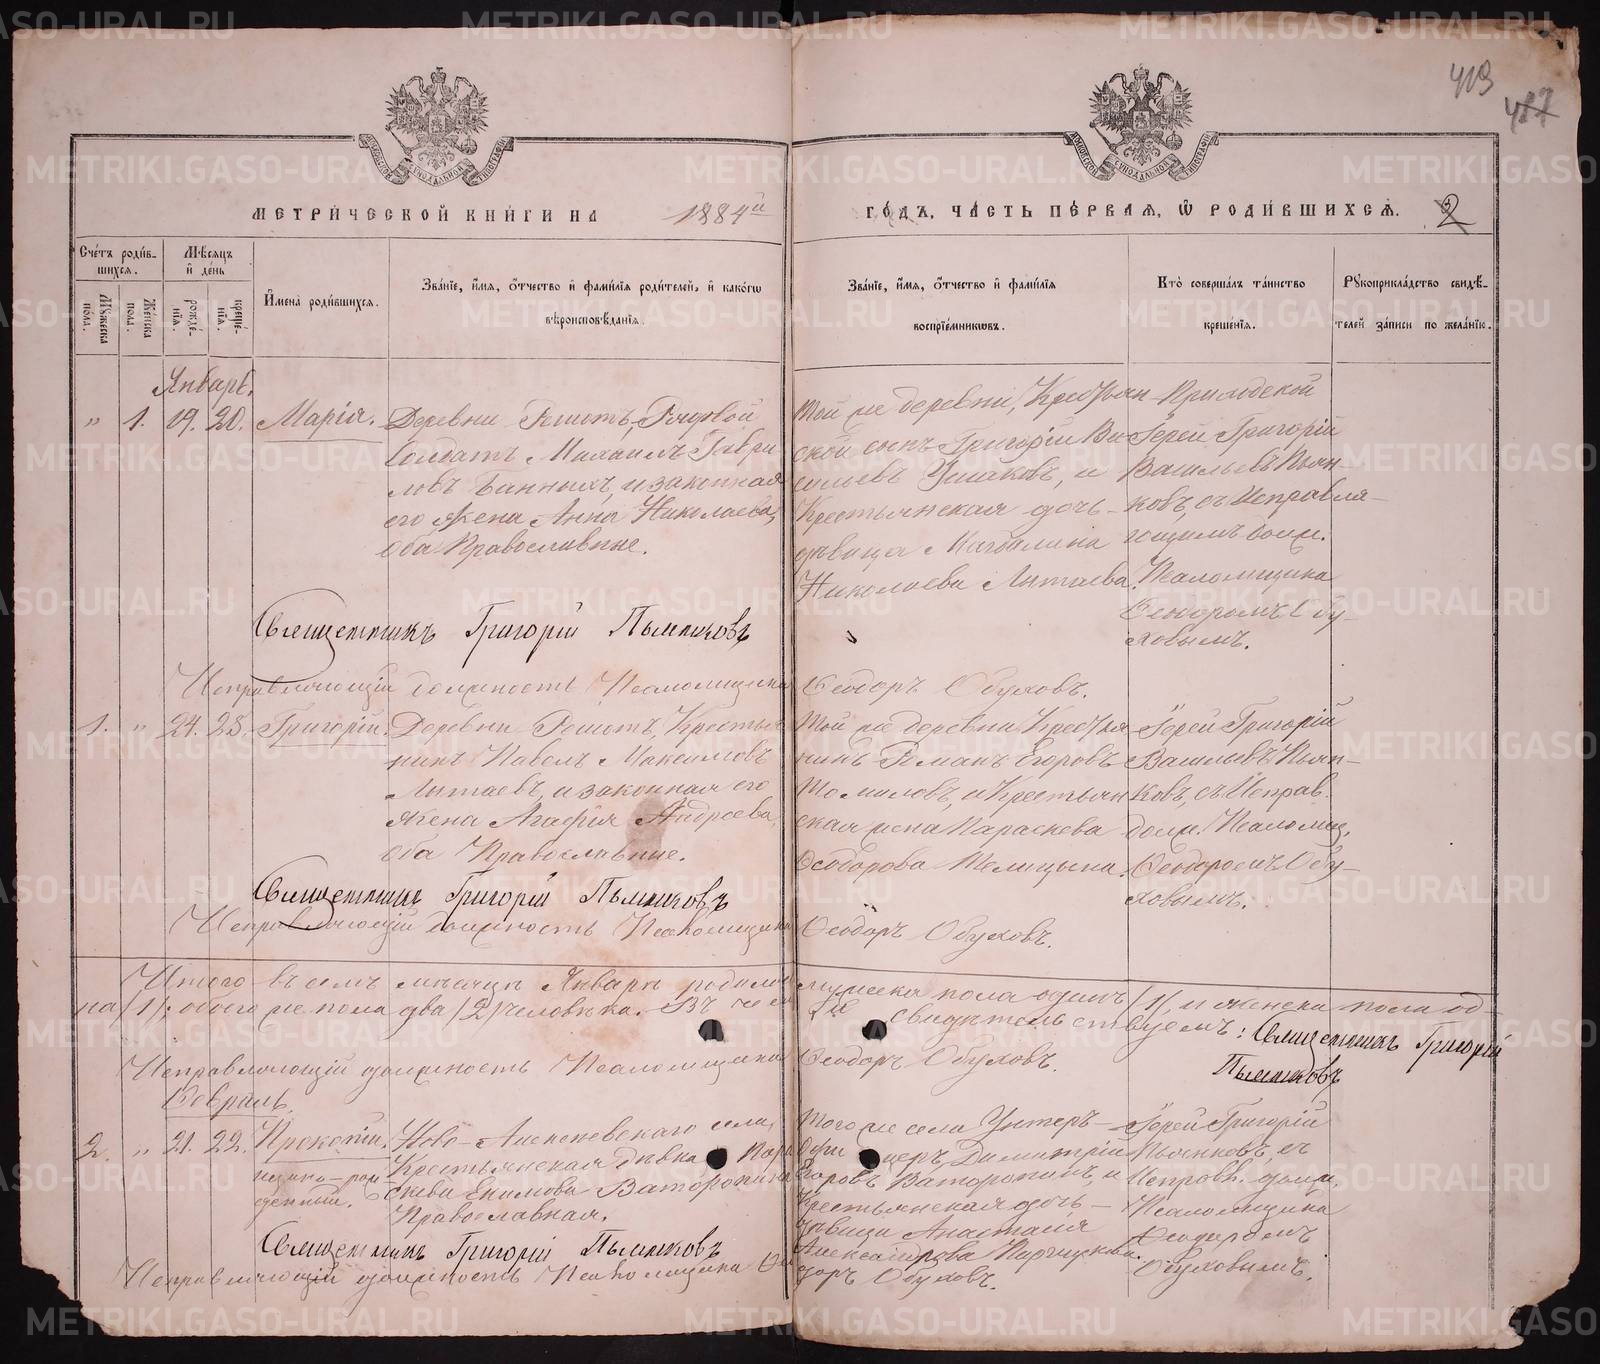 413
417
МЕТРИ́ЧЕСКОЙ КНИ́ГИ НА 1884й
ГО́ДЪ, ЧА́СТЬ ПЕ́РВАЯ, Ѡ РОДИ́ВШИХСЯ. 2
Сче́тъ роди́вшихся.
Мѣ́сяцъ и де́нь
Мꙋ́жеска по́ла.
Же́нска по́ла.
рожде́нїя.
креще́нїя.
И҆мена̀ роди́вшихся.
Зва́нїе, и҆́мя, ѻ҆́тчество и҆ фами́лїя роди́телей, и҆ како́гѡ
вѣроисповѣ́данїя.
Зва́нїе, и҆́мя, ѻ҆́тчество и҆ фами́лїя
воспрїе́мникѡвъ.
Кто̀ соверша́лъ та́инство
креще́нїя.
Рꙋкоприкла́дство свидѣ́телей за́писи по жела́нїю.
Январь.
" 1. 19. 20. Марія.
Деревни Решотъ, Рядовой
Солдатъ Михаилъ Гаври
ловъ Банныхъ, и законная
его жена Анна Николаева,
оба Православные.
Той же деревни, Крестьян
ской сынъ Григорій Ва
сильевъ Ушаковъ, и
Крестьянская дочь
дѣвица Магдалина
Николаева Литаева.
Приходской
Іерей Григорій
Васильевъ Пьян-
ковъ, съ Исправля-
ющимъ долж.
Псаломщика
Ѳеодоромъ Обу-
ховымъ.
Священникъ Григорій Пьянковъ
Исправляющій должность Псаломщика Ѳеодоръ Обуховъ.
1. " 24. 25. Григорій.
Деревни Решотъ, Крестья
нинъ Павелъ Максимовъ
Литаевъ, и законная его
жена Агафія Андреева,
оба Православные.
Той же деревни Крестья
нинъ Романъ Егоровъ
Томиловъ, и Крестьян
ская жена Параскева
Ѳеодорова Телицына.
Іерей Григорій
Васильевъ Пьян-
ковъ, съ Исправ.
долж. Псаломщ.
Ѳеодоромъ Обу-
ховымъ.
Священникъ Григорій Пьянковъ
Исправляющій должность Псаломщика Ѳеодоръ Обуховъ.
Итого въ семъ мѣсяцѣ Январѣ родилось мужеска пола одинъ /1/, и женска пола од-
на /1/; обоего же пола два /2/ человѣка. Въ чемъ и свидѣтельствуемъ: Священникъ Григорій
Пьянковъ
Исправляющій должность Псаломщика Ѳеодоръ Обуховъ.
Февраль.
2. " 21. 22. Прокопій.
незаконно-рож-
денный.
Ново-Алексѣевскаго села,
Крестьянская дѣвка Пара
скева Екимова Ваторопина
Православная.
Того же села Унтеръ-
Офицеръ Димитрій
Егоровъ Ваторопинъ, и
Крестьянская дочь
дѣвица Анастасія
Александрова
Іерей Григорій
Пьянковъ, съ
Исправл. долж.
Псаломщика
Ѳеодоромъ
Обуховымъ.
Священникъ Григорій Пьянковъ
Исправляющій должность Псаломщика Ѳео
доръ Обуховъ.